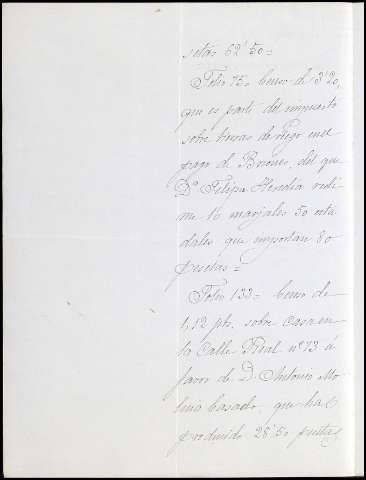 setas 62'50=
Folio 75= Censo de 3'20,
que es parte del impuesto
sobre tierras de riego en el
pago de Briones, del que
Dª Felipa Heredia redi-
me 16 marjales 50 esta-
dales que importan 80
pesetas=
Folio 133= Censo de
1,12 pts. sobre casa en
la Calle Real nº 73 á
favor de D. Antonio Mo-
lina Casado, que ha
producido 28'50 pesetas,